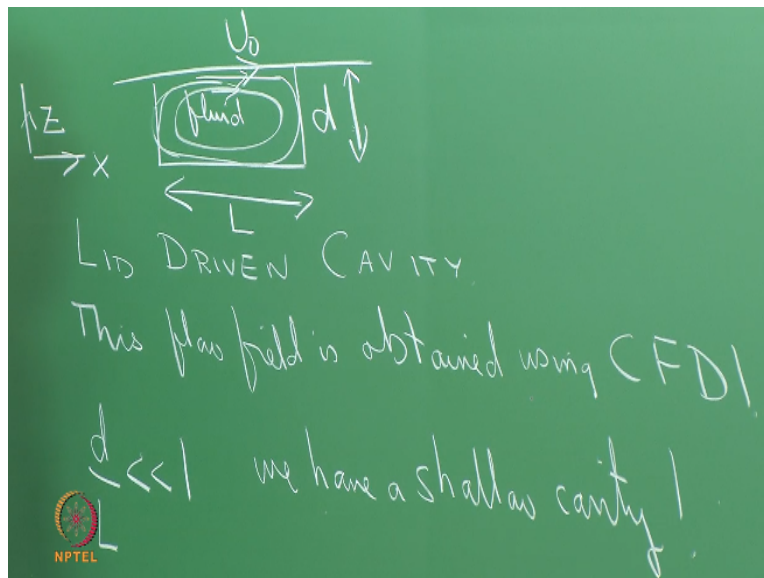 U₀
fluid
d
z
x
L
LID DRIVEN CAVITY
This flow field is obtained using CFD!
d/L <<1 we have a shallow cavity!
NPTEL